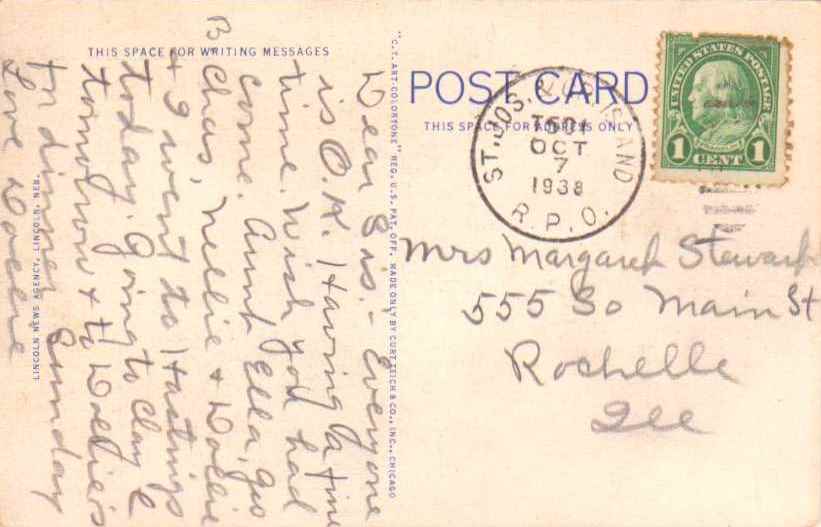 THIS SPACE FOR WRITING MESSAGES
POST CARD
THIS SPACE FOR ADDRESS ONLY
UNITED STATES POSTAGE
1 CENT 1
ST. JOS. & GR. ISLAND
OCT
7
1938
R.P.O.
Mrs Margaret Stewart
555 So Main St
Rochelle
Ill
Dear - Everyone
is O.K. Having a fine
time. Wish you had
come. Aunt Ella,
Chas, Nellie + Dollie
+ I went to Hastings
today. Going to Clay C
tomorrow + to Dollie's
for dinner Sunday
Love
"C.T. ART-COLORTONE" REG. U.S. PAT. OFF. MADE ONLY BY CURT TEICH & CO., INC., CHICAGO
LINCOLN NEWS AGENCY, LINCOLN, NEB.